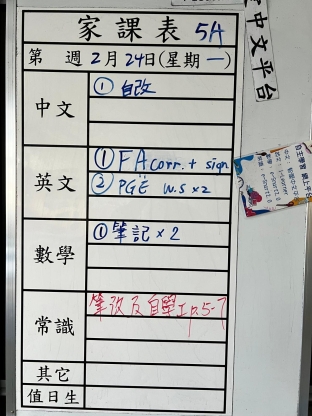 家課表 5A
第 週 2月24日(星期一)
中文
① 自改
英文
① FA corr. + sign
② PGE W.S x2
數學
① 筆記 x 2
常識
筆改及自學工p.5-7
其它
值日生
中文平台